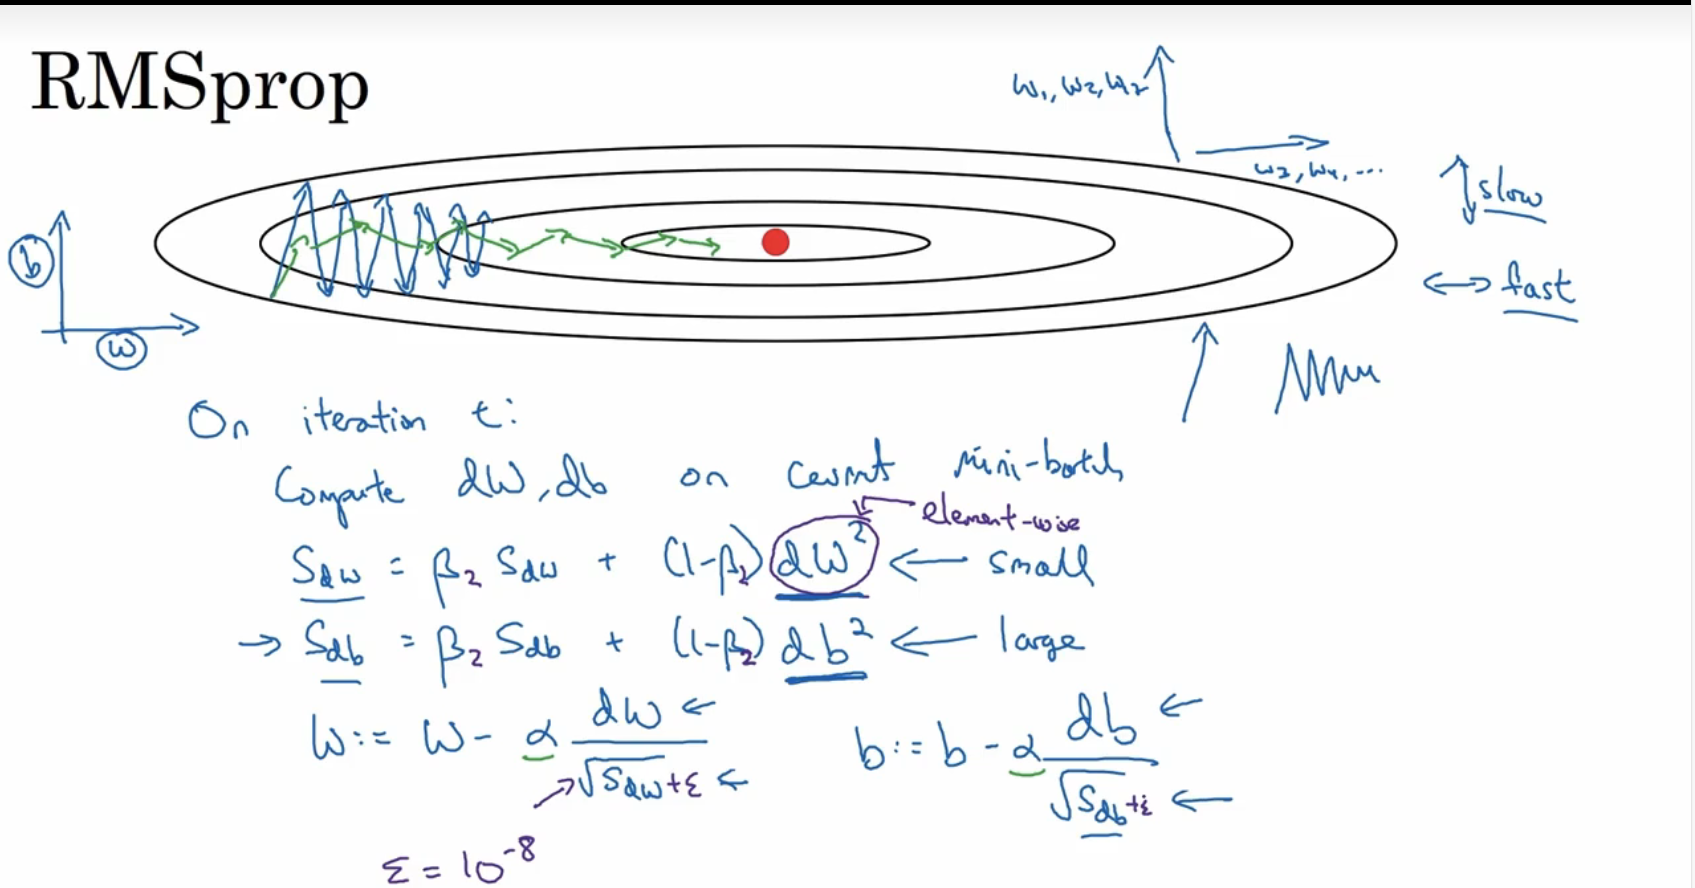 RMSprop
w₁, w₂, w₂
w₃, w₄, ...
slow
b
fast
w
On iteration t:
Compute dW, db on current mini-batch
element-wise
Sdw = β₂ Sdw + (1-β₂) dW² ← small
→ Sdb = β₂ Sdb + (1-β₂) db² ← large
W := W - α dW / √Sdw + ε ← b := b - α db / √Sdb + ε ←
ε = 10⁻⁸